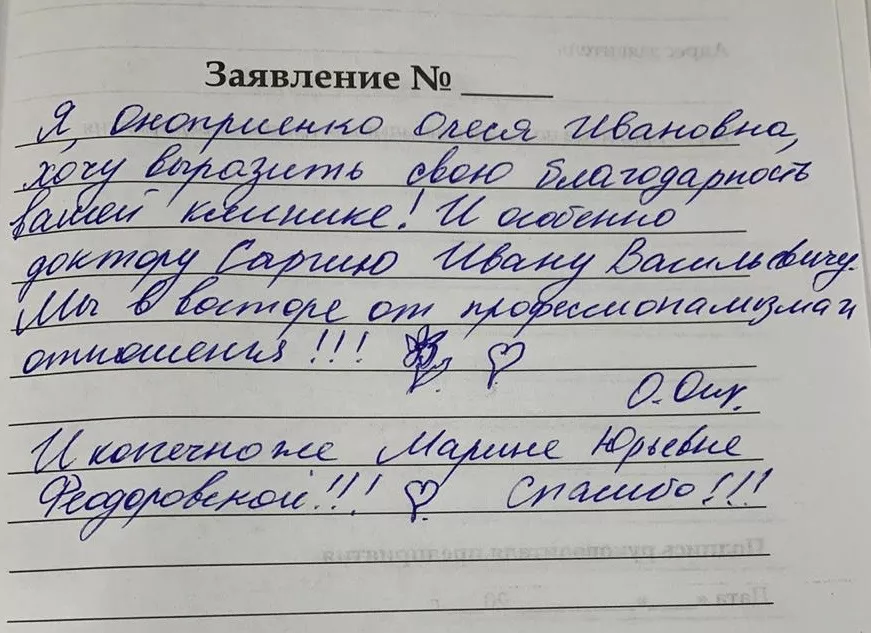 Заявление № ____
Я, Оноприенко Олеся Ивановна,
хочу выразить свою благодарность
вашей клинике! И особенно
доктору Саргию Ивану Васильевичу.
Мы в восторе от профессионализма и
отношения!!!
О. Он
И конечно же Марине Юрьевне
Феодоровской!!! Спасибо!!!
Адрес заявителя
Подпись руководителя предприятия
Дата « » 20 г.